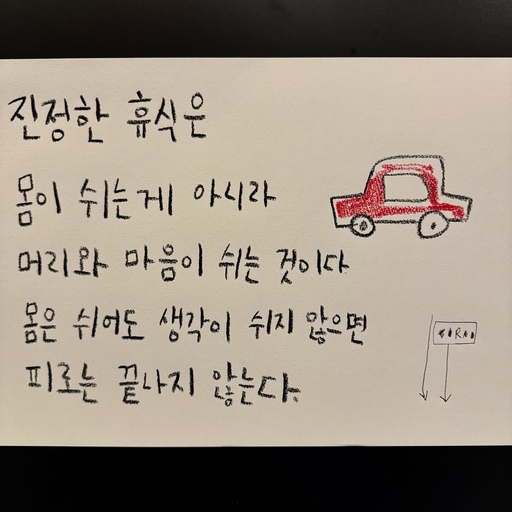 진정한 휴식은
몸이 쉬는게 아시라
머리와 마음이 쉬는 것이다
몸은 쉬어도 생각이 쉬지 않으면
피로는 끝나지 않는다.